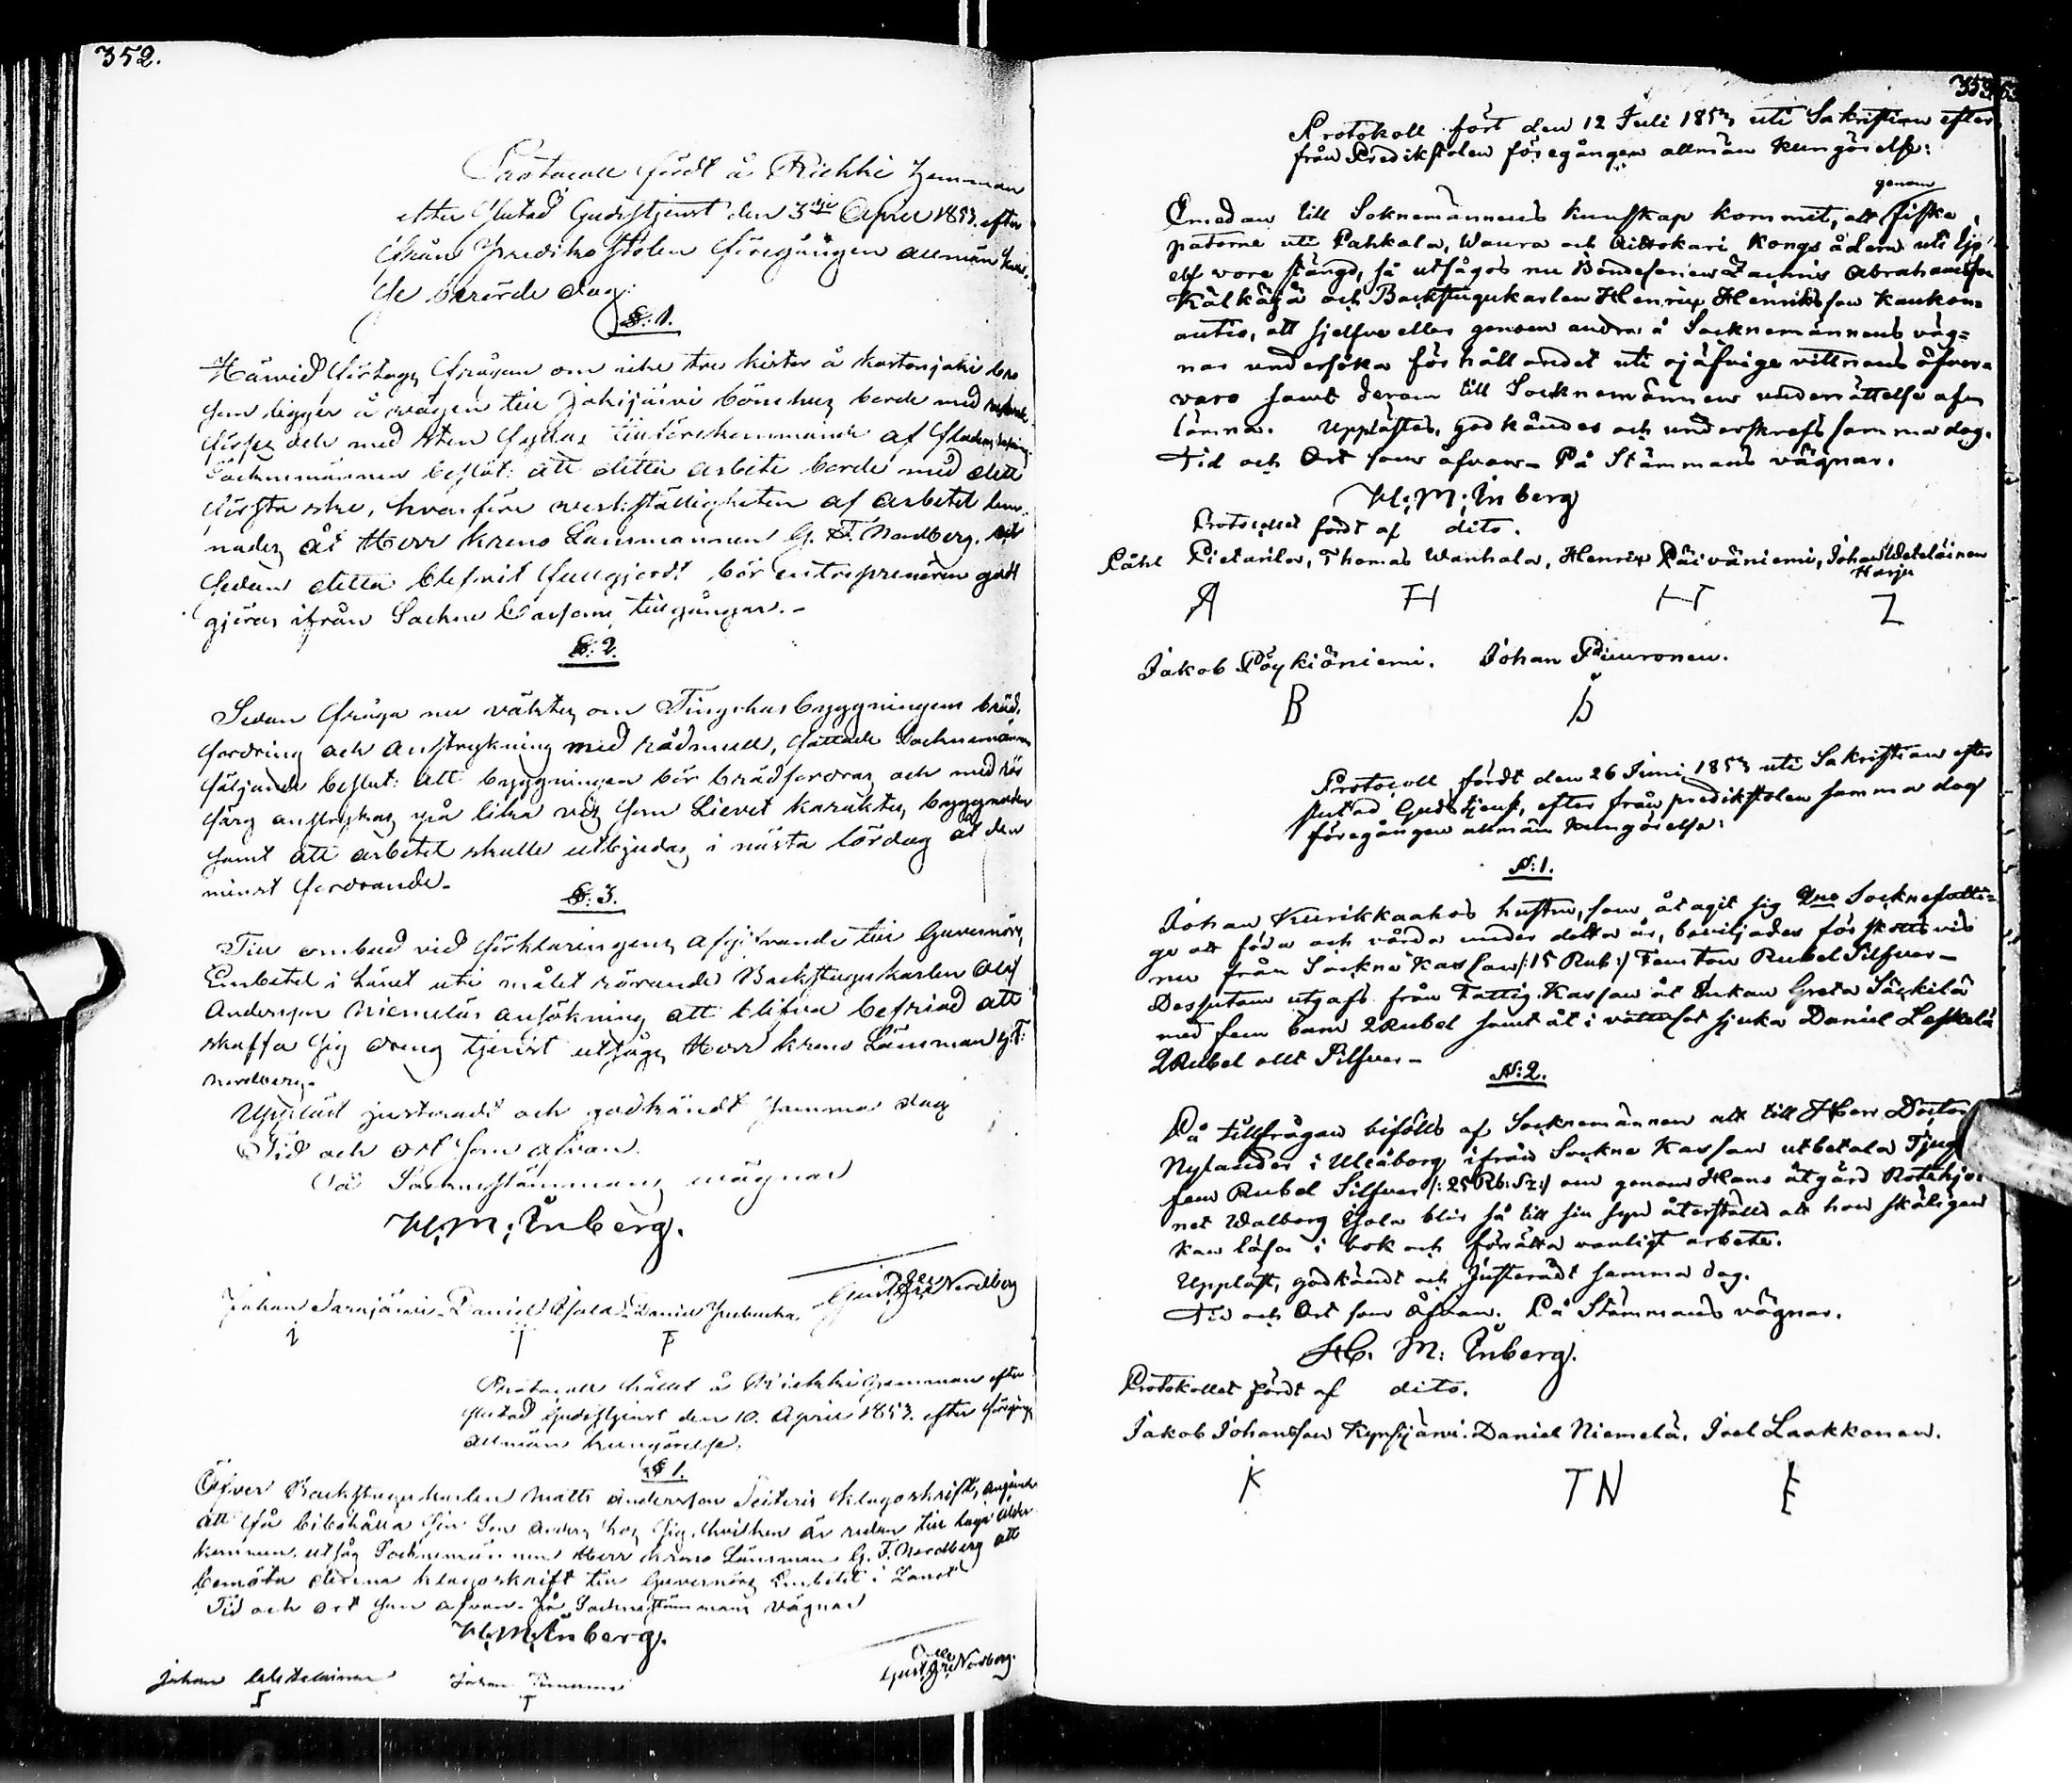 352.
Protocoll fördt å Riekki hemman
efter slutad Gudstjenst den 3dje April 1853. efter
ifrån Predikostolen föregången allmän
se berörde dag:
§: 1.
Härvid förtogs frågan om icke tre kistor å
som ligger å vägen till Jokijärvi bönehus borde med
förses och med sten fyllas
Socknemännen beslöt: att detta arbete borde med det
första ske, hvarföre verkställigheten af arbetet lem-
nades åt Herr Krono Länsmannen G. F. Nordberg. och
sedan detta blifvit fullgjordt bör entreprenören godt
göras ifrån Sockne Cassans tillgångar.-
§: 2.
Sedan fråga nu väktes om Tingshusbyggningens bräd-
fordring och anstrykning med rådmull, fattade Socknemännen
följande beslut: att byggningen bör brädfordras och med röd
färg anstrykas på lika vis som Lievet karakters byggnaden
samt att arbetet skulle utbjudas i nästa lördag åt den
minst fordrande.
§: 3.
Till ombud vid förklaringens afgifvande till Guvernörs
Embetet i Länet uti målet rörande Backstugukarlen Olof
Andersson Niemeläs ansökning att blifva befriad att
skaffa sig dreng tjenst utsågs Herr Krono Länsman G. F.
Nordberg.
Uppläst justeradt och godkändt samma dag
Tid och ort som ofvan.
På Sockenstämmans vägnar
H: M: Ånberg.
Johan Sarajärvi. Daniel Ojala. Daniel
Gust. Fre Nordberg
Protocoll hållet å Riekki hemman efter
slutad Gudstjenst den 10. April 1853. efter föregången
allmän kungörelse.
§ 1.
Öfver Backstugukarlen Matts Andersson klagoskrift, angående
att få bibehålla sin Son Anders hos sig, hvilken är redan till laga ålder
kommen, utsåg Socknemännen Herr Krono Länsman G. F. Nordberg att
bemöta denna klagoskrift till Guvernörs Embetet i Länet
Tid och ort som ofvan. På Socknestämmans vägnar
H: M: Ånberg.
Johan
Johan
Gust. Fre Nordberg.
353
Protokoll fört den 12 Juli 1853 uti Sakristian efter
från Predikstolen föregången allmän kungörelse:
genom
Emedan till Soknemännens kunskap kommit, att fiske
patorne uti Pahkala, Waara och Aittokari Kongs ådern uti Ijo
elf vore stängd, så utsågos nu Bondesonen Zachris Abrahamsson
Kälkäjä och Backstugukarlen Henrix Henriksson Kaukon-
autio, att sjelfve eller genom andra å Socknemännens väg-
nar undersöka förhållandet uti ojäfvige vittnens öfver-
varo samt derom till Socknemännen underrättelse af-
lämna. Upplästes, godkändes och underskrefs samma dag.
Tid och Ort som ofvan - På Stämmans vägnar.
H: M: Ånberg
Protocollet fördt af dito.
Påhl Pietarila, Thomas Wanhala, Henrix Päiväniemi, Johan Weteläinen
Harju
A H H Z
Jakob Pöykiöniemi. Johan Puuronen.
B
Protocoll fördt den 26 Juni 1853 uti Sakristian efter
slutad Gudstjenst, efter från predikstolen samma dag
föregången allmän kungörelse:
§: 1.
Johan Kurikkaahos hustru, som åtagit sig 2ne Socknefatti-
ge att föda och vårda under detta år, beviljades förskottsvis
nu från Sockne Kassan /:15 Rub:/ Femton Rubel Silfver -
Dessutom utgafs från Fattig Kassan åt Enkan Greta Säckilä
med fem barn 2 Rubel samt åt i sjuka Daniel Leskelä
2 Rubel allt Silfver -
§: 2.
På tillfrågan bifölls af Socknemännen att till Herr Doctor
Nylander i Uleåborg ifrån Sockne Kassan utbetala Tjugo
fem Rubel Silfver /:25 Rb: Sr:/ om genom Hans åtgärd Rotehjo-
net Walborg Ojala blir så till sin syn återställd att hon skäligen
kan läsa i bok och förrätta vanligt arbete.
Uppläst, godkändt och justeradt samma dag.
Tid och Ort som Ofvan. På Stämmans vägnar.
H: M: Ånberg.
Protokollet fördt af dito.
Jakob Johansson Kynsijärvi. Daniel Niemelä. Joel Laakkonen.
K TN E